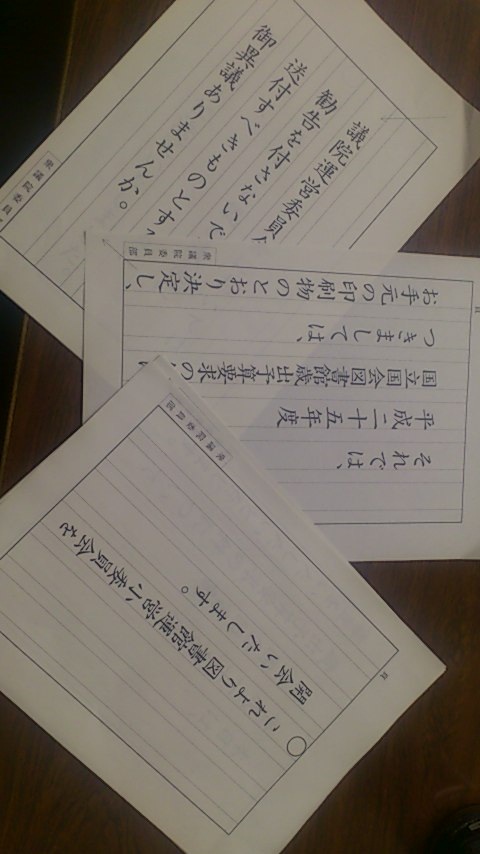 議院運営委員
勧告を付さないで
送付すべきものとす
御異議ありませんか。
衆議院委員
それでは、
平成二十五年度
国立国会図書館歳出予算要求の
つきましては、
お手元の印刷物のとおり決定し、
衆議院委員部
頁
○これより図書館運営小委員会を
開会いたします。
衆議院委員部